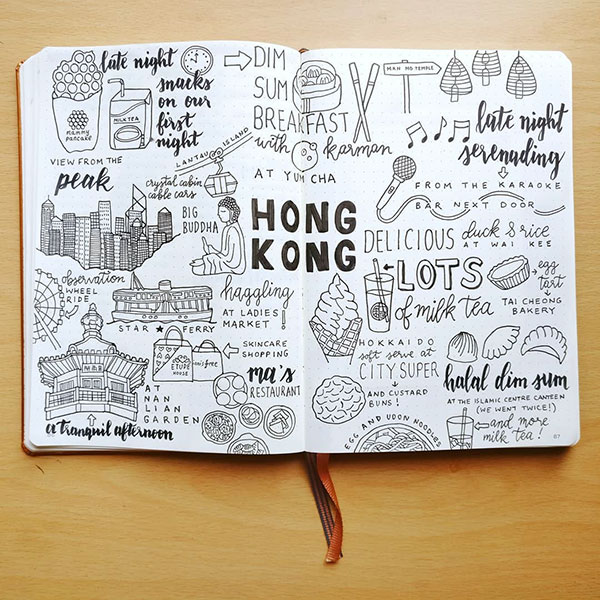 late night
snacks
on our
first
night
mammy
pancake
MILK TEA
VIEW FROM THE
peak
LANTAU ISLAND
crystal cabin
cable cars
BIG
BUDDHA
observation
WHEEL
RIDE
STAR ★ FERRY
haggling
AT LADIES'
MARKET!
SKINCARE
SHOPPING
ETUDE
HOUSE
innisfree
AT
NAN
LIAN
GARDEN
a tranquil afternoon
ma's
RESTAURANT
DIM
SUM
BREAKFAST
with karman
AT YUM CHA
HONG
KONG
MAN MO TEMPLE
late night
serenading
FROM THE KARAOKE
BAR NEXT DOOR
DELICIOUS duck & rice
AT WAI KEE
LOTS
of milk tea
egg
tart
TAI CHEONG
BAKERY
HOKKAIDO
soft serve at
CITY'SUPER
AND CUSTARD
BUNS!
EGG AND UDON NOODLES
halal dim sum
AT THE ISLAMIC CENTRE CANTEEN
(WE WENT TWICE!)
and more
milk tea!